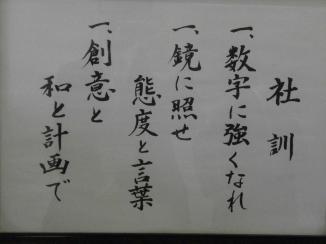 社訓
一、数字に強くなれ
一、鏡に照せ
態度と言葉
一、創意と
和と計画で